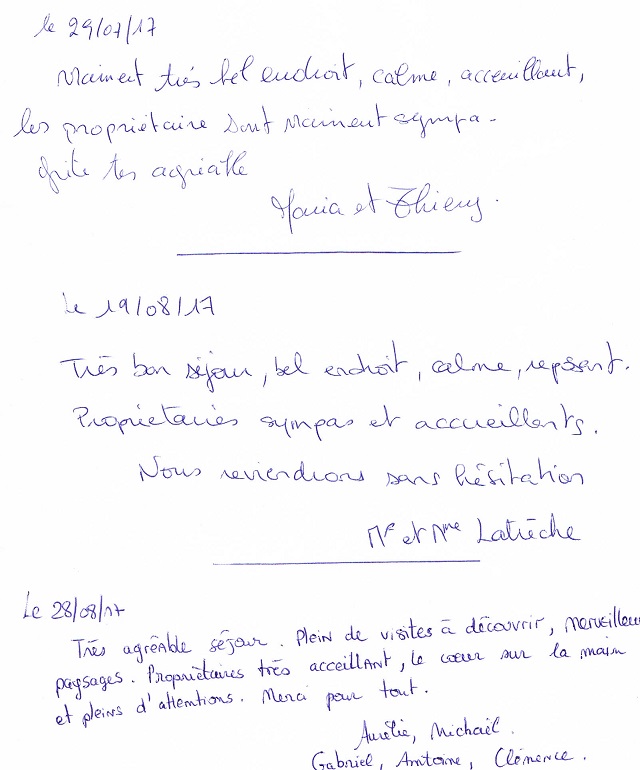 le 29/07/17
Vraiment très bel endroit, calme, acceuillant,
les propriétaire sont vraiment sympa.
gite tes agréable
et Thierry.
Le 19/08/17
Très bon séjour, bel endroit, calme, reposant.
Propriétaires sympas et accueillants.
Nous reviendrons sans hésitation
Mr et Mme Latrèche
Le 28/08/17
Très agréable séjour. Plein de visites à découvrir, Merveilleu
paysages. Propriétaires très acceillant, le cœur sur la main
et pleins d'attentions. Merci pour tout.
Aurélie, Michaël.
Gabriel, Antoine, Clémence.